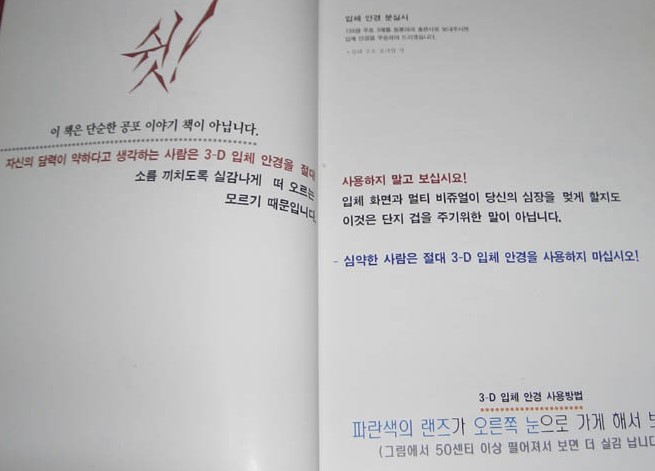 쉿!
이 책은 단순한 공포 이야기 책이 아닙니다.
자신의 담력이 약하다고 생각하는 사람은 3-D 입체 안경을 절대
소름 끼치도록 실감나게 떠 오르는
모르기 때문입니다.
입체 안경 분실시
입체 안경을 우송하여 드리겠습니다.
사용하지 말고 보십시요!
입체 화면과 멀티 비쥬얼이 당신의 심장을 멎게 할지도
이것은 단지 겁을 주기위한 말이 아닙니다.
- 심약한 사람은 절대 3-D 입체 안경을 사용하지 마십시오!
3-D 입체 안경 사용방법
파란색의 랜즈가 오른쪽 눈으로 가게 해서
(그림에서 50센티 이상 떨어져서 보면 더 실감 납니다